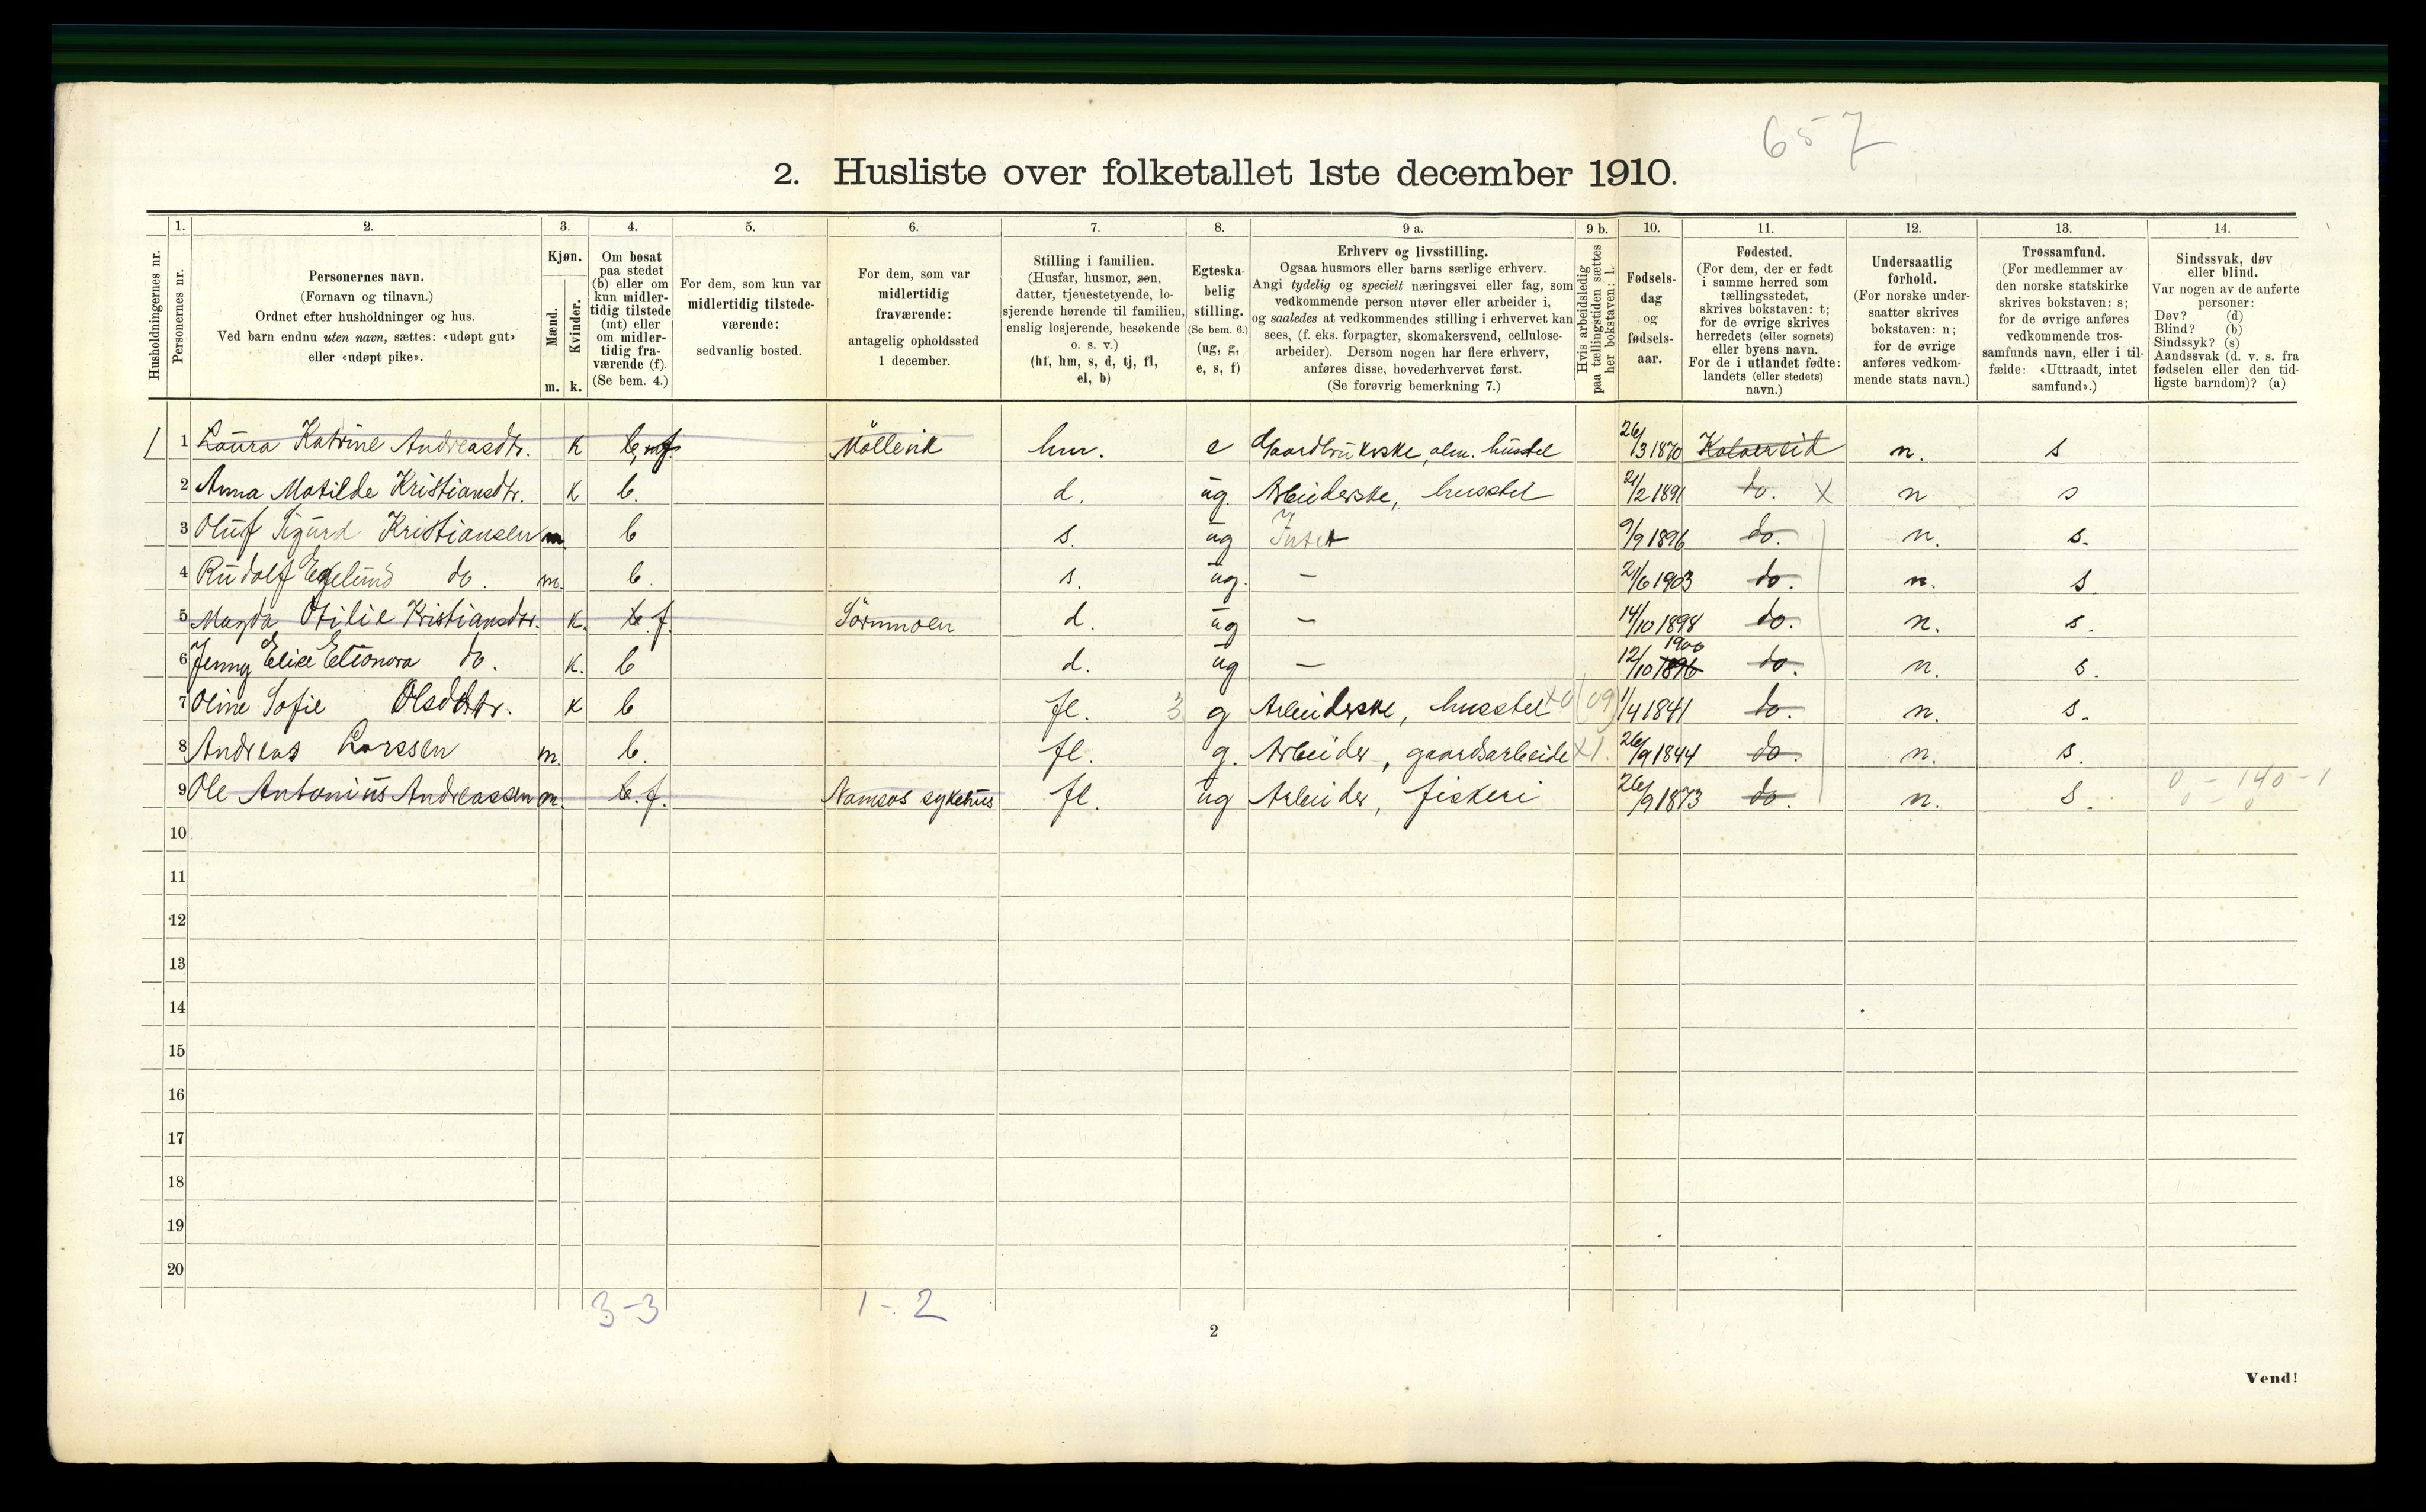 657
2. Husliste over folketallet 1ste december 1910.
Husholdningernes nr.
1. Personernes nr.
2. Personernes navn. (Fornavn og tilnavn.) Ordnet efter husholdninger og hus. Ved barn endnu uten navn, sættes: «udøpt gut» eller «udøpt pike».
3. Kjøn. Mænd. m. Kvinder. k.
4. Om bosat paa stedet (b) eller om kun midlertidig tilstede (mt) eller om midlertidig fraværende (f). (Se bem. 4.)
5. For dem, som kun var midlertidig tilstedeværende: sedvanlig bosted.
6. For dem, som var midlertidig fraværende: antagelig opholdssted 1 december.
7. Stilling i familien. (Husfar, husmor, søn, datter, tjenestetyende, losjerende hørende til familien, enslig losjerende, besøkende o. s. v.) (hf, hm, s, d, tj, fl, el, b)
8. Egteskabelig stilling. (Se bem. 6.) (ug, g, e, s, f)
9 a. Erhverv og livsstilling. Ogsaa husmors eller barns særlige erhverv. Angi tydelig og specielt næringsvei eller fag, som vedkommende person utøver eller arbeider i, og saaledes at vedkommendes stilling i erhvervet kan sees, (f. eks. forpagter, skomakersvend, cellulosearbeider). Dersom nogen har flere erhverv, anføres disse, hovederhvervet først. (Se forøvrig bemerkning 7.)
9 b. Hvis arbeidsledig paa tællingstiden sættes her bokstaven: l.
10. Fødselsdag og fødselsaar.
11. Fødested. (For dem, der er født i samme herred som tællingsstedet, skrives bokstaven: t; for de øvrige skrives herredets (eller sognets) eller byens navn. For de i utlandet fødte: landets (eller stedets) navn.)
12. Undersaatlig forhold. (For norske undersaatter skrives bokstaven: n; for de øvrige anføres vedkommende stats navn.)
13. Trossamfund. (For medlemmer av den norske statskirke skrives bokstaven: s; for de øvrige anføres vedkommende trossamfunds navn, eller i tilfælde: «Uttraadt, intet samfund».)
14. Sindssvak, døv eller blind. Var nogen av de anførte personer: Døv? (d) Blind? (b) Sindssyk? (s) Aandssvak (d. v. s. fra fødselen eller den tidligste barndom)? (a)
1 1 Laura Katrine Andreasdtr. k b f Møllevik hm. e Gaardbrukerske, alm. husstel 26/3 1870 Kolvereid n. s
2 Anna Matilde Kristiansdtr. k b. d. ug. Arbeiderske, husstel 21/2 1891 do. X n s
3 Oluf Sigurd Kristiansen m b s. ug Intet 9/9 1896 do. n. s.
4 Rudolf Egelund do. m. b. s. ug. — 21/6 1903 do. n. s.
5 Magda Otilie Kristiansdtr. k. b. f. Sörmoen d. ug — 14/10 1898 do. n. s.
6 Jenny Elise Eleonora do. k. b d. ug — 12/10 1896 1900 do. n. s.
7 Oline Sofie Olsdtr. k b fl. 3 g Arbeiderske, husstel 1/4 1841 do. n. s.
8 Andreas Larssen m. b. fl. g. Arbeider, gaardsarbeide x1. 26/9 1844 do. n. s.
9 Ole Antonius Andreassen m. b. f. Namsos sykehus fl. ug Arbeider, fiskeri 26/9 1873 do. n. s. 0 - 140 - 1
0 - 0
10
11
12
13
14
15
16
17
18
19
20
3-3 1-2
2
Vend!